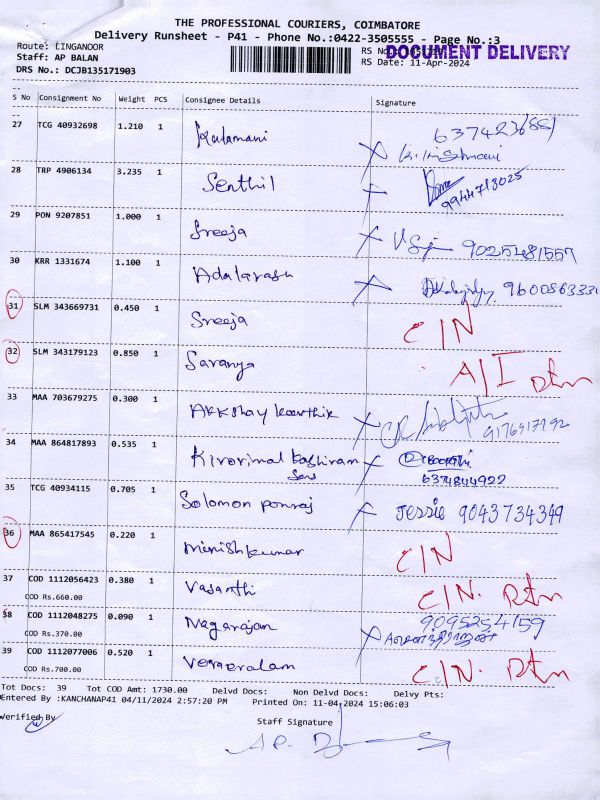 THE PROFESSIONAL COURIERS, COIMBATORE
Delivery Runsheet - P41 - Phone No.:0422-3505555 - Page No.:3
Route: LINGANOOR
RS No
DOCUMENT DELIVERY
Staff: AP BALAN
RS Date: 11-Apr-2024
DRS No.: DCJB135171903
S No Consignment No Weight PCS Consignee Details Signature
27 TCG 40932698 1.210 1 Kalamani
28 TRP 4906134 3.235 1 Senthil 9944713025
29 PON 9207851 1.000 1 Sreeja 9025481557
30 KRR 1331674 1.100 1 Adalarasu 9600863331
31 SLM 343669731 0.450 1 Sreeja C/N
32 SLM 343179123 0.850 1 Saranya A/I Rtn
33 MAA 703679275 0.300 1 Akkshay Karthik 9176917792
34 MAA 864817893 0.535 1 Kirorimal Kashiram Sons 6374844922
35 TCG 40934115 0.705 1 Solomon ponraj Jessie 9043734349
36 MAA 865417545 0.220 1 minish kumar C/N
37 COD 1112056423 0.380 1 Vasanthi C/N. Rtn
COD Rs.660.00
38 COD 1112048275 0.090 1 Nagarajan 9095254159
COD Rs.370.00
39 COD 1112077006 0.520 1 C/N. Rtn
COD Rs.700.00
Tot Docs: 39 Tot COD Amt: 1730.00 Delvd Docs: Non Delvd Docs: Delvy Pts:
Entered By :KANCHANAP41 04/11/2024 2:57:20 PM Printed On: 11-04-2024 15:06:03
Verified By
Staff Signature